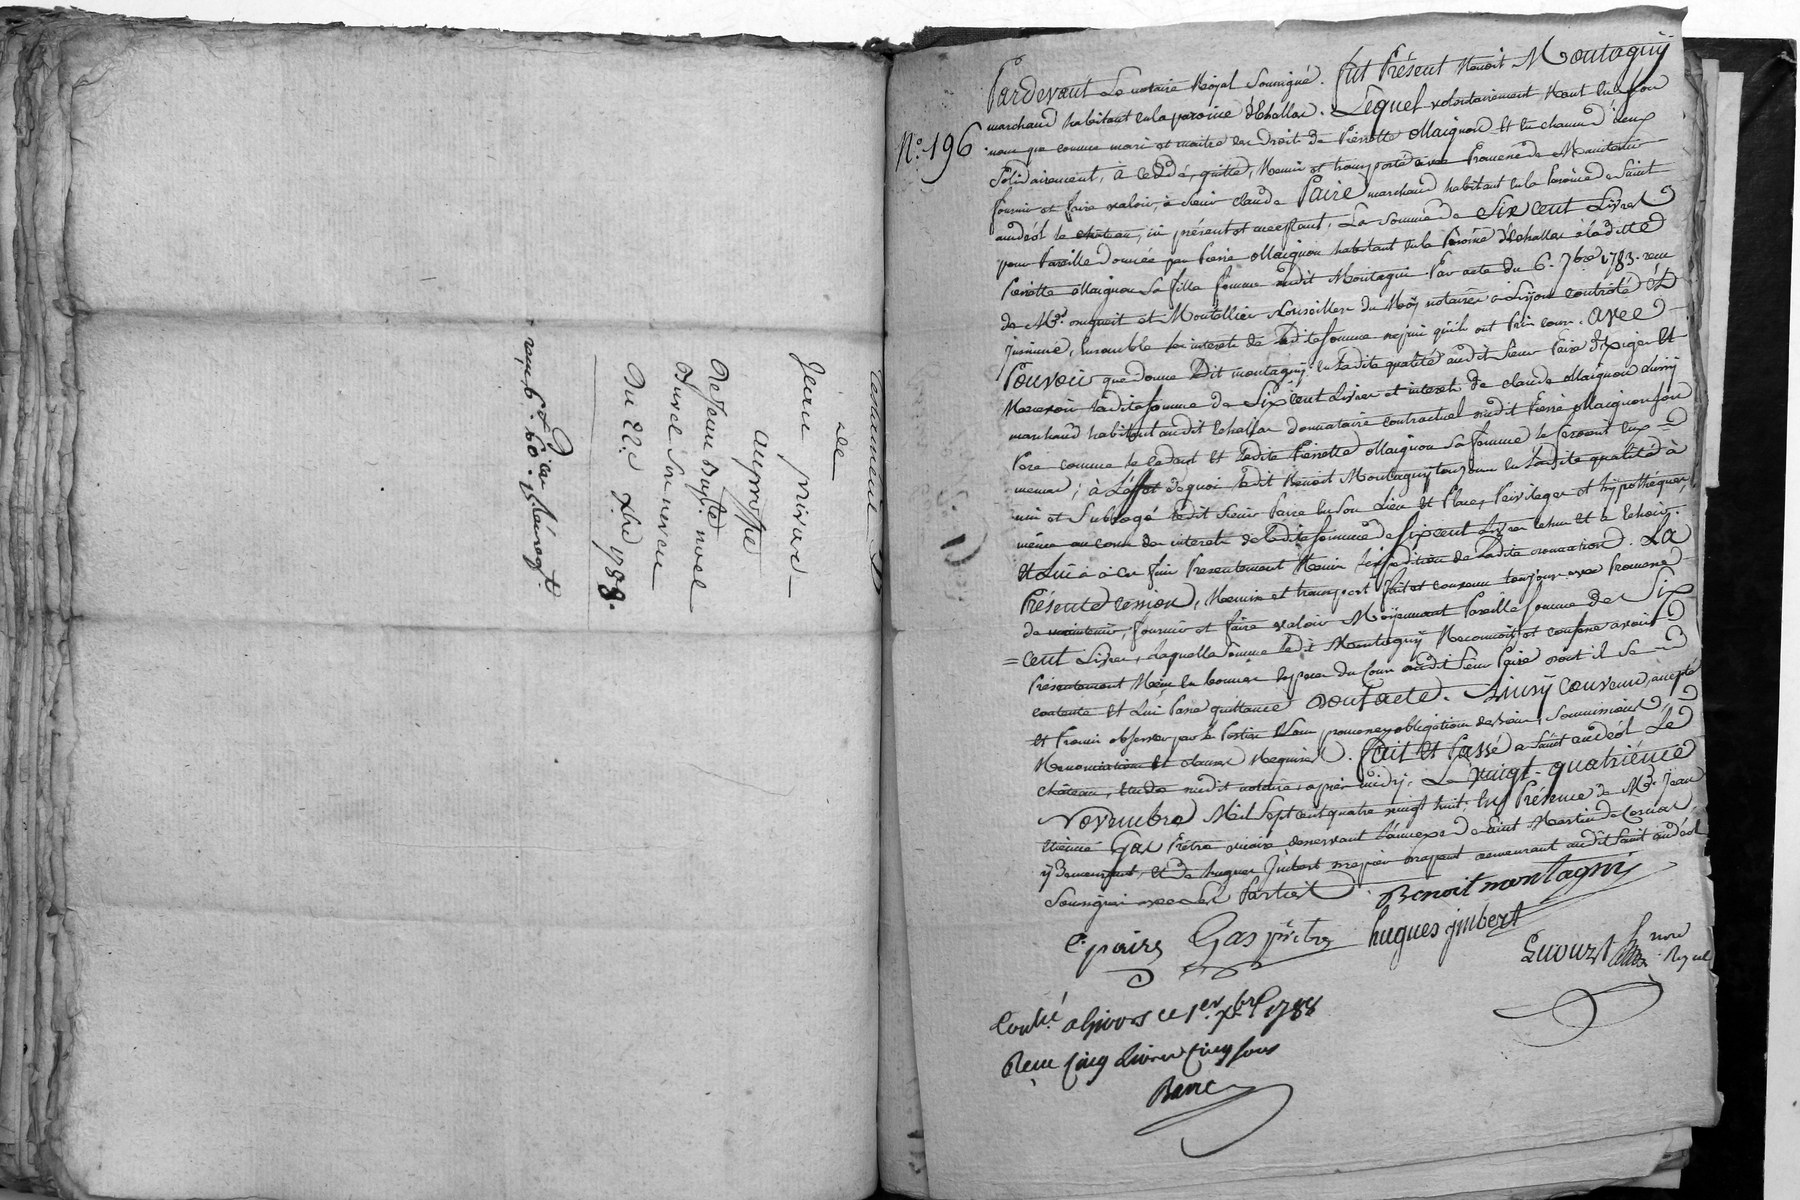 Testament
de
jean privas
au proffit
de jean bapte. noel
Furcel son neveu
du 22e. xbre 1788.
N.o 196
Pardevant Le notaire Royal Soussigné. fut Présent Benoit Montagny
marchand habitant en la paroisse d'Echallas. Lequel volontairement tant en son
nom que comme mari et maitre des droits de Pierrette Maignon et en chacun d'eux
Solidairement, a cedé, quitté, Remis et transporté avec Promesse de Maintenir
fournir et faire valoir, à sieur claude Paire marchand habitant en la Paroisse de Saint
andéol le château, ici présent et acceptant, La Somme de Six cent Livres
pour Pareille donnée par Pierre Maignon habitant en la Paroisse d'Echallas à ladite
Pierrette Maignon Sa fille femme dudit Montagni Par acte du 6. 7bre 1783. reçu
de Mes. et Montellier Conseillers du Roy notaires à Lyon controlé et
insinué, Ensemble les interets de ladite somme depuis qu'ils ont Pris cours. avec
Pouvoir que donne Ledit montagny en ladite qualité audit Sieur Paire d'Exiger et
Recevoir ladite somme de Six cent Livres et interets de claude Maignon aussy
marchand habitant audit Echallas donnataire contractuel dudit Pierre Maignon son
Pere comme le cedant et ladite Pierrette Maignon Sa femme le feroient eux
memes; à L'effet de quoi ledit Benoit Montagny toujours en ladite qualité à
mis et Subrogé ledit Sieur Paire en Son Lieu et Place, Privileges et hypothéques,
même au cours des interets de ladite somme de Six cent Livres echus et a Echoir.
et Lui a à ces fins Presentement Remis L'expedition de ladite donnation. La
Présente cession, Remise et transport fait et convenu toujours avec Promesse
de maintenir, fournir et faire valoir Moyennant Pareille somme de Six
= cent Livres, laquelle somme ledit Montagny Reconnoit et confesse avoir
Présentement Reçu en bonnes Especes du Cours audit Sieur Paire dont il Se
contente et Lui Passe quittance dont acte. Ainsy convenu, accepté
et Promis observer par les Parties à Leurs promesses obligations de biens, Soumissions
Renonciations et clauses Requises. fait et Passé a Saint andéol Le
château, Etude dudit notaire, après midy, Le vingt-quatrième
Novembre Mil Sept cent quatre vingt huit. En Présence de Mre. Jean
Etienne Gas Prêtre vicaire desservant L'annexe de Saint Martin de Cornas,
y demeurant, et de hugues Jmbert demeurant audit Saint andéol
Soussignés avec Les Parties.
Benoit montagni
C. paire Gas ptre hugues jmbert
nore
Royal
Contlé. a Givors ce 1er. xbre 1788
Reçu Cinq Livres Cinq sous
Barre